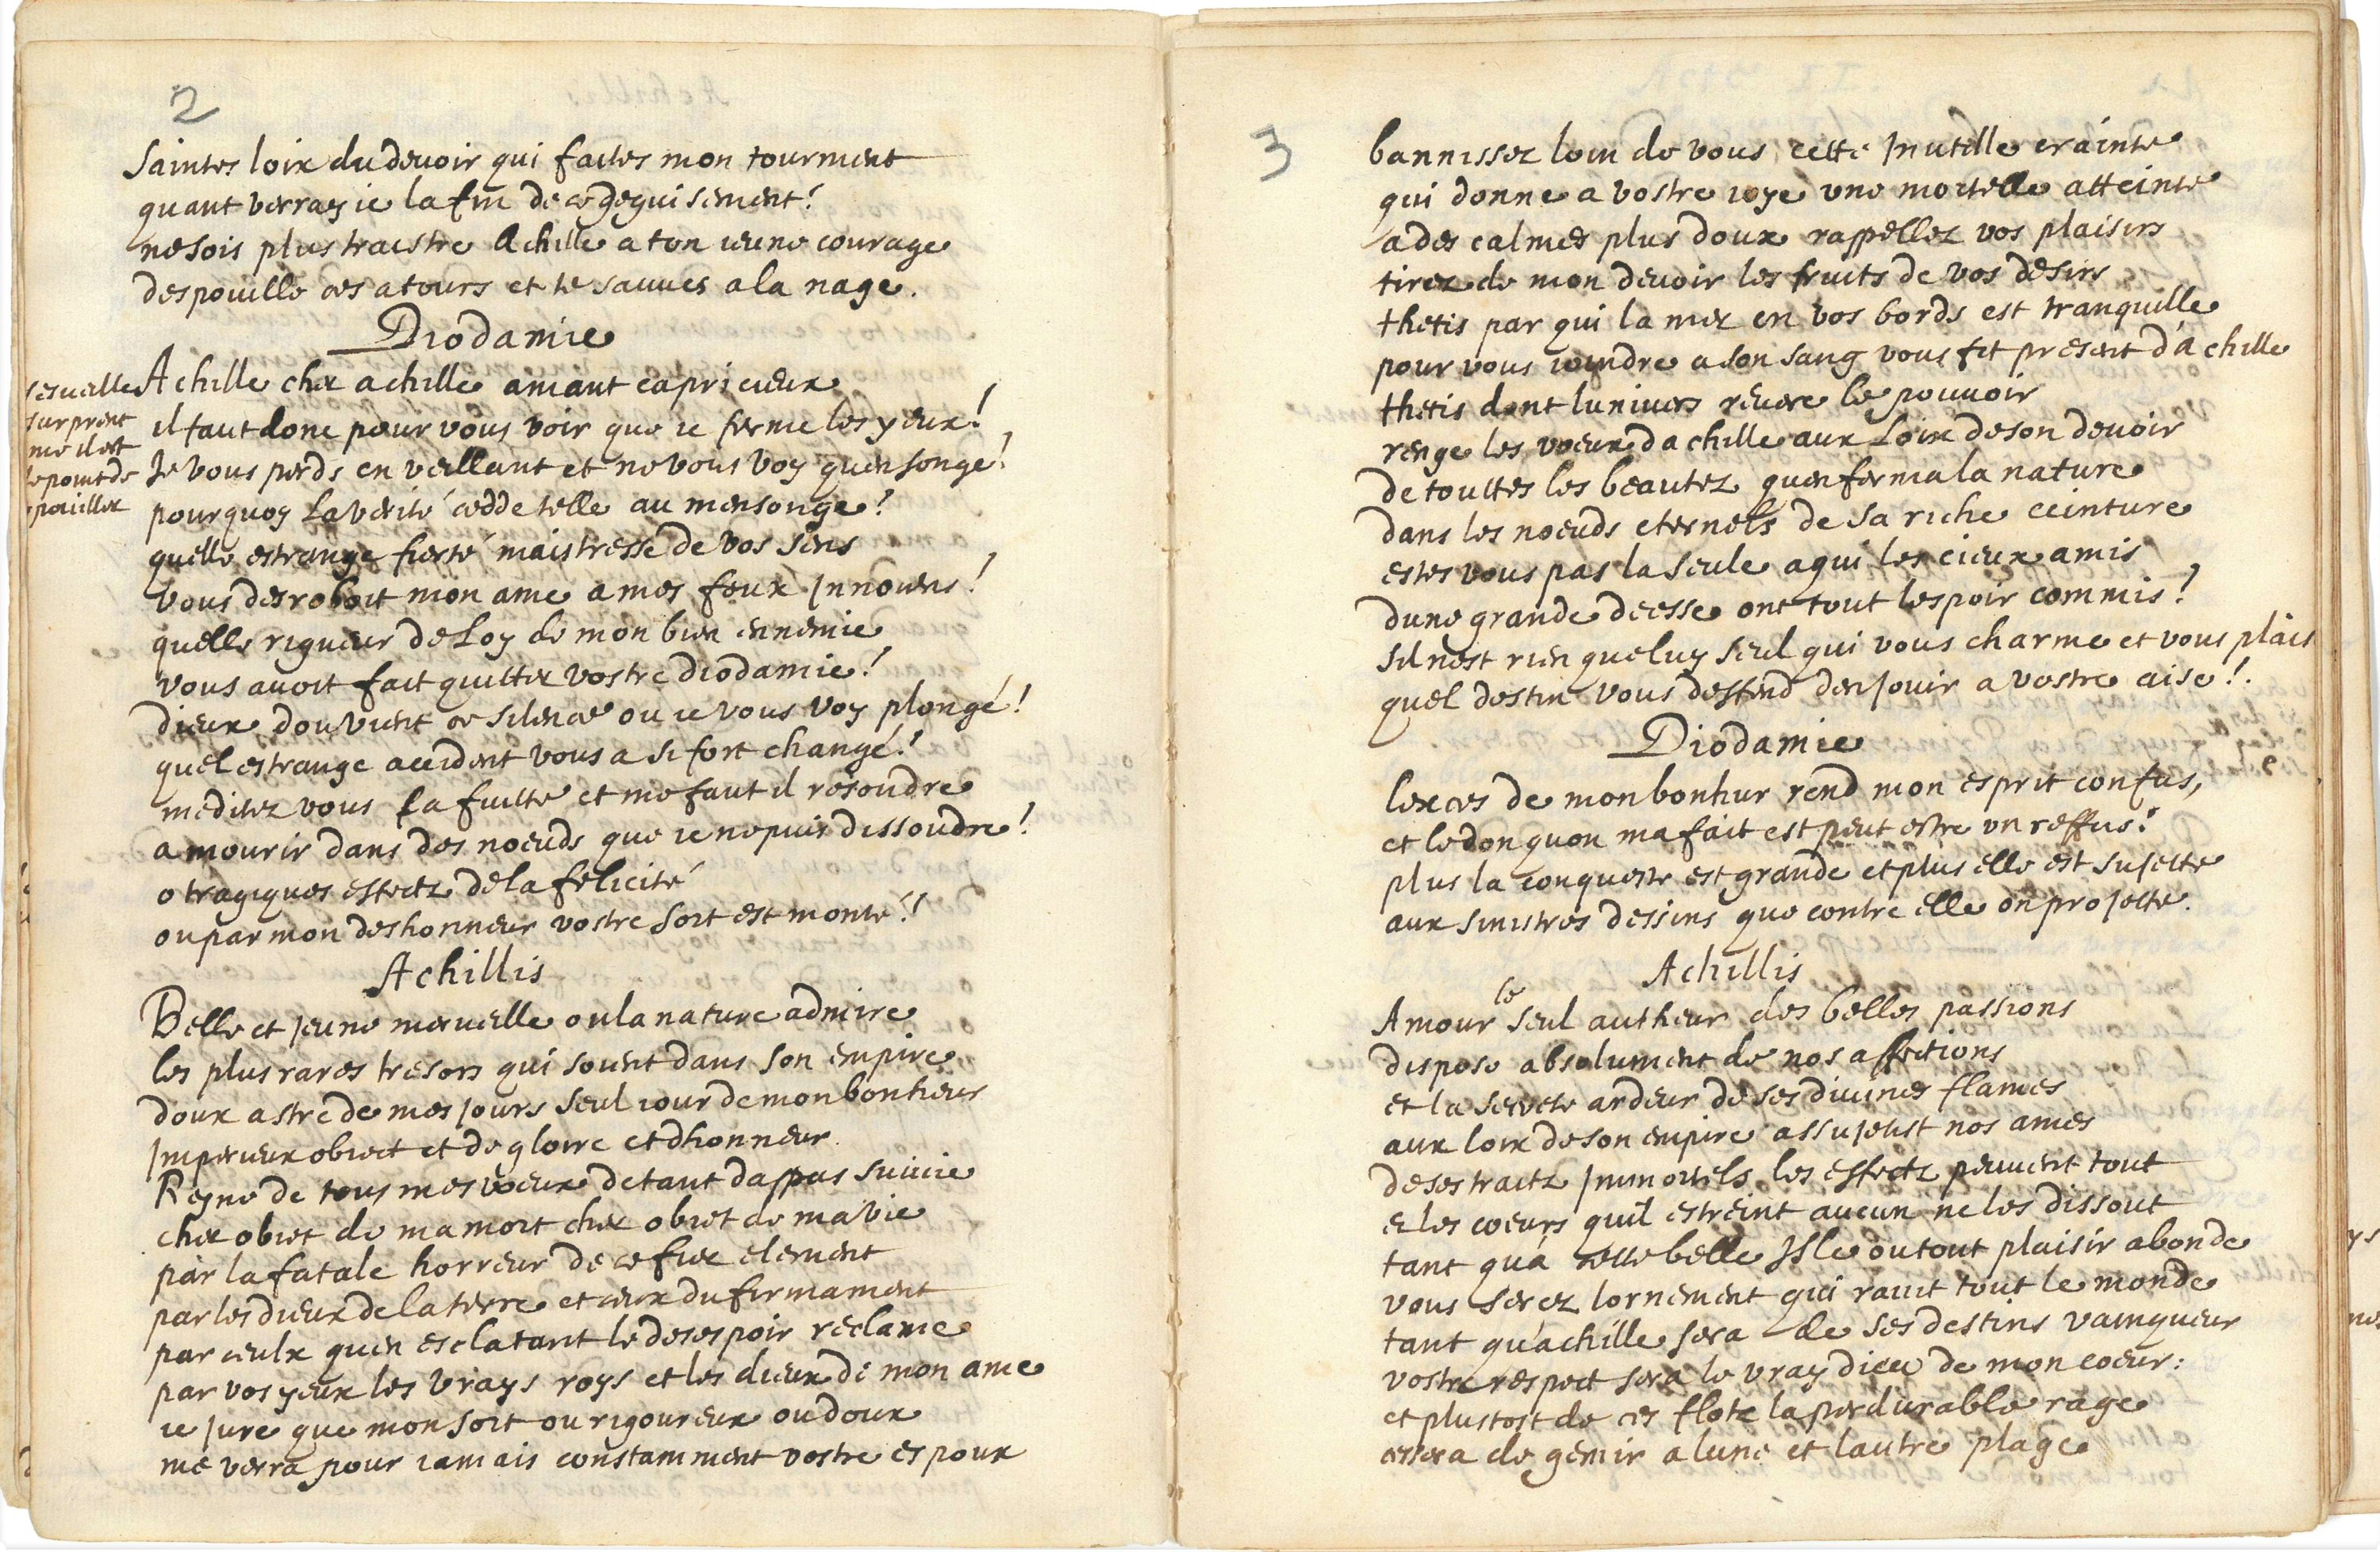 2
Saintes loix du devoir qui faites mon tourment
quant verray ie la fin de ce deguisement!
ne sois plus traistre Achille a ton ieune courage
despouille ces atours et te sauves a la nage.
Diodamie
s'esveille
surprent
me il est
le point de
pouiller
Achille cher achille amant capricieux
il faut donc pour vous voir que ie ferme les yeux!
Je vous perds en veillant et ne vous voy quen songe!
pourquoy la verité cedde telle au mensonge?
quelle estrange fierté maistresse de vos sens
vous desroboit mon ame a mes feux Innocens!
quelle rigueur de Loy de mon bien ennemie
vous avoit fait quitter vostre diodamie!
dieux dou vient ce silence ou ie vous voy plongé!
quel estrange accident vous a si fort changé!
meditez vous la fuitte et me faut il resoudre
a mourir dans des noeuds que ie ne puis dissoudre!
o tragiques effectz de la felicité
ou par mon deshonneur vostre sort est monté!
Achillis
Belle et jeune merveille ou la nature admire
les plus rares tresors qui soient dans son empire
doux astre de mes jours seul iour de mon bonheur
Imperieux obiect et de gloire et dhonneur.
Reyne de tous mes voeux de tant dappas suivie
cher obiet de ma mort cher obiet de ma vie
par la fatale horreur de ce fier element
par les dieux de la terre et ceux du firmament
par ceulx quen esclatant le desespoir reclame
par vos yeux les vrays roys et les dieux de mon ame
ie jure que mon sort ou rigoureux ou doux
me verra pour iamais constamment vostre espoux
3
bannissez loin de vous cette Inutille crainte
qui donne a vostre ioye une mortelle atteinte
a des calmes plus doux rappellez vos plaisirs
tirez de mon devoir les fruits de vos desirs
thetis par qui la mer en vos bords est tranquille
pour vous ioindre a son sang vous fit present d'achille
thetis dont lunivers revere le pouvoir
renge les voeux dachille aux Loix de son devoir
de touttes les beautez quenferma la nature
dans les noeuds eternels de sa riche ceinture
estes vous pas la seule a qui les cieux amis
dune grande deesse ont tout lespoir commis?
sil nest rien que luy seul qui vous charme et vous plais
quel destin vous deffend den Jouir a vostre aise!
Diodamie
lexces de mon bonhur rend mon esprit confus,
et le don quon ma fait est peut estre un reffus!
plus la conqueste est grande et plus elle est sujette
aux sinistres dessins que contre elle on projette.
Achillis
Amour le seul autheur des belles passions
dispose absolument de nos affections
et la secrete ardeur de ses divines flames
aux loix de son empire assujetist nos ames
de ses traitz Immortels les effectz peuvent tout
e les coeurs quil estreint aucun ne les dissout
tant qua cette belle Isle ou tout plaisir abonde
vous serez lornement qui ravit tout le monde
tant qu'achille sera de ses destins vainqueur
vostre respect sera le vray dieu de mon coeur:
et plustost de ces flotz la perdurable rage
cessera de gemir a lune et lautre plage